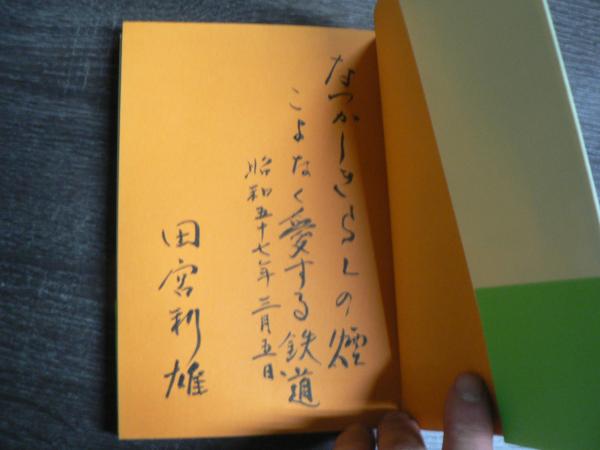 なつかしきふるさとの煙
こよなく愛する鉄道
昭和五十七年三月五日
田宮利雄